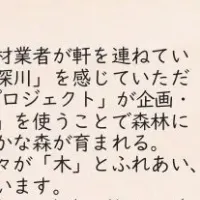 材業者が軒を連ねてい
深川」を感じていただ
プロジェクト」が企画・
」を使うことで森林に
かな森が育まれる。
々が「木」とふれあい、
います。